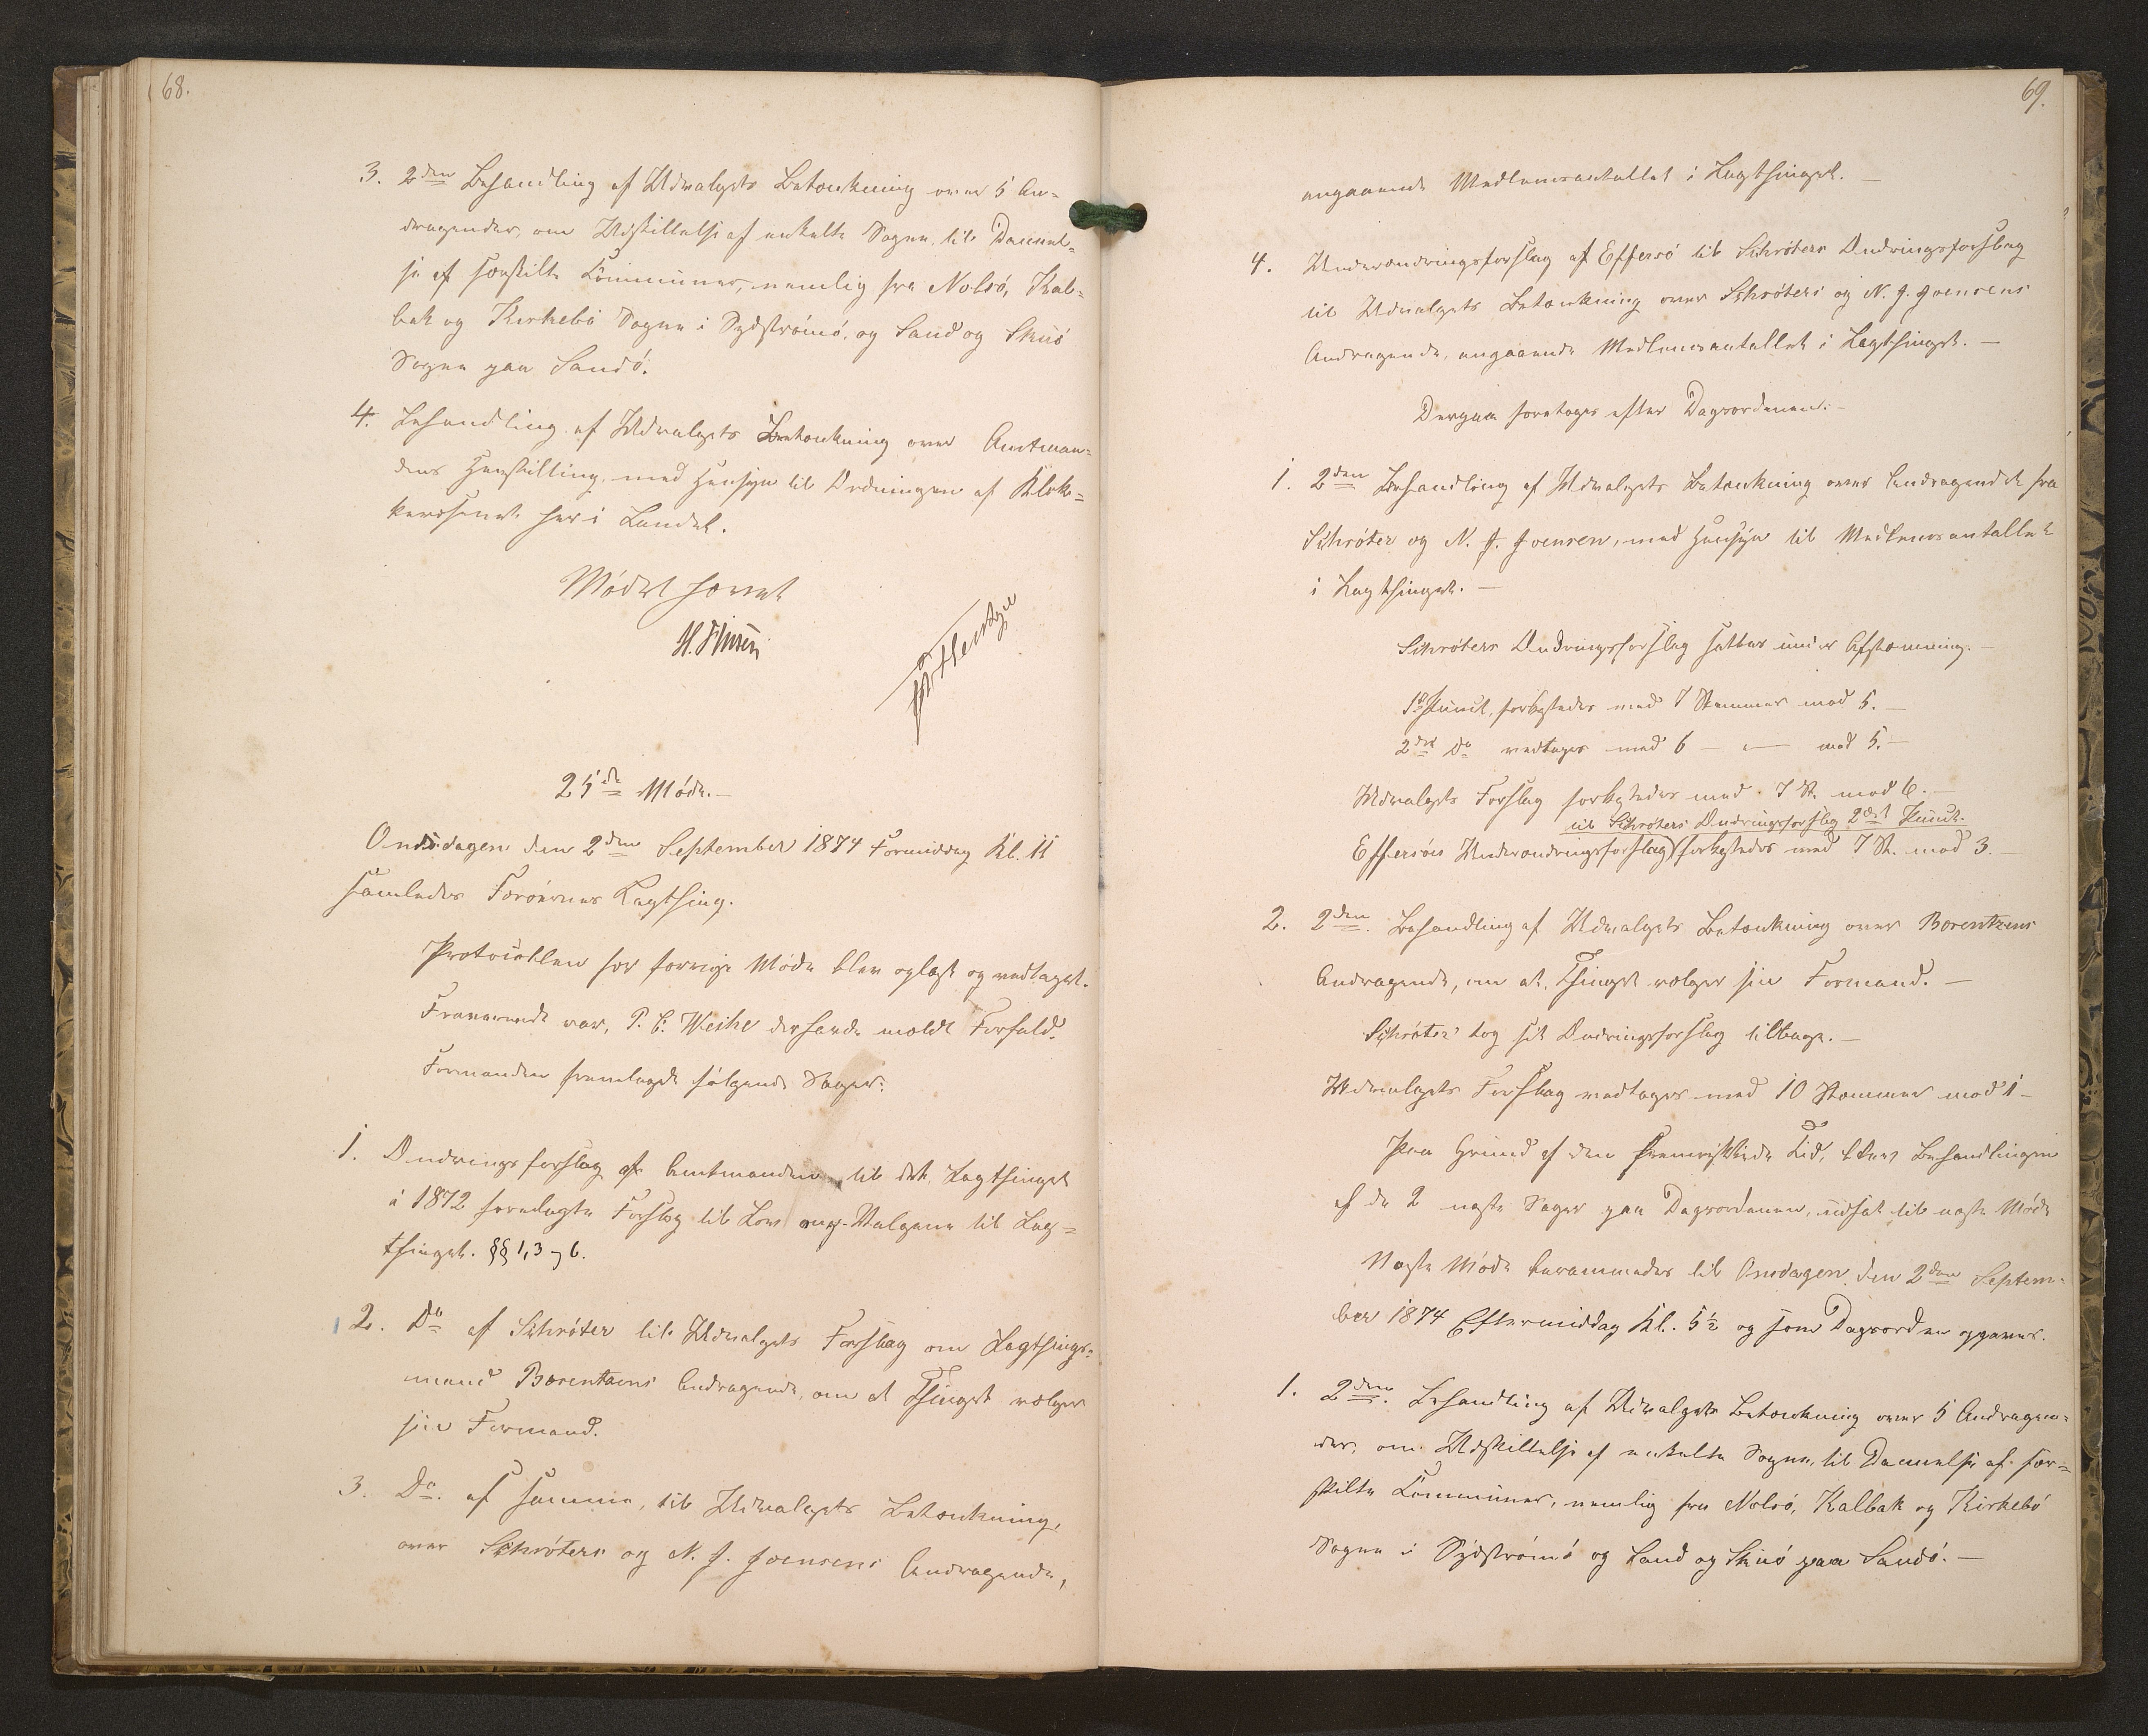 68.
3. 2den Behandling af Udvalgets Betænkning over 5 An-
dragender, om Udskillelse af enkelte Sogne, til Dannel-
se af særskilte Communer, nemlig fra Nolsö, Kal-
bak og Kirkebö Sogne i Sydströmö, og Sand og Skuö
Sogne paa Sandö.
4. Behandling af Udvalgets Betænkning over Amtman-
dens Henstilling, med Hensyn til Ordningen af Klok-
kervæsenet her i Landet.
Mödet hævet
25de Möde.
Onsdagen den 2den September 1874 Formiddag Kl. 11
samledes Færöernes Lagthing.
Protocollen for forrige Möde blev oplæst og vedtaget.
Fraværende var, P. C. Weihe der havde meldt Forfald.
Formanden fremlagde følgende Sager:
1. Ændringsforslag af Amtmanden til det Lagthinget
i 1872 forelagte Forslag til Lov ang. Valgene til Lag-
thinget. §§ 1, 3 og 6.
2. Do af Schröter til Udvalgets Forslag om Lagthings-
mand Bærentsens Andragende, om at Thinget vælger
sin Formand.
3. Do. af samme, til Udvalgets Betænkning,
over Schröters og N. J. Joensens Andragende,
69.
angaaende Medlemsantallet i Lagthinget. —
4. Underændringsforslag af Effersö til Schröters Ændringsforslag
til Udvalgets Betænkning over Schröters og N. J. Joensens
Andragende, angaaende Medlemsantallet i Lagthinget. —
Derpaa foretoges efter Dagsordenen: —
1. 2den Behandling af Udvalgets Betænkning over Andragendet fra
Schröter og N. J. Joensen, med Hensyn til Medlemsantallet
i Lagthinget. —
Schröters Ændringsforslag sattes under Afstemning. —
1ste Punct, forkastedes med 7 Stemmer mod 5. —
2det Do vedtages med 6 — " — mod 5. —
Udvalgets Forslag forkastedes med 7 St. mod 6. —
til Schröters Ændringsforslag 2det Punct.
Effersöes Underændringsforslag forkastedes med 7 St. mod 3. —
2. 2den. Behandling af Udvalgets Betænkning over Bærentsens
Andragende, om at Thinget vælger sin Formand. —
Schröter tog sit Ændringsforslag tilbage. —
Udvalgets Forslag vedtages med 10 Stemmer mod 1 —
Paa Grund af den fremrykkede Tid, blev Behandlingen
af de 2 næste Sager paa Dagsordenen, udsat til næste Möde
Næste Möde berammedes til Onsdagen den 2den Septem-
ber 1874 Eftermiddag Kl. 5½ og som Dagsorden opgaves.
1. 2den. Behandling af Udvalgets Betænkning over 5 Andragen-
der, om Udskillelse af enkelte Sogne, til Dannelse af sær-
skilte Communer, nemlig fra Nolsö, Kalbak og Kirkebö
Sogne i Sydströmö og Sand og Skuö paa Sandö. —